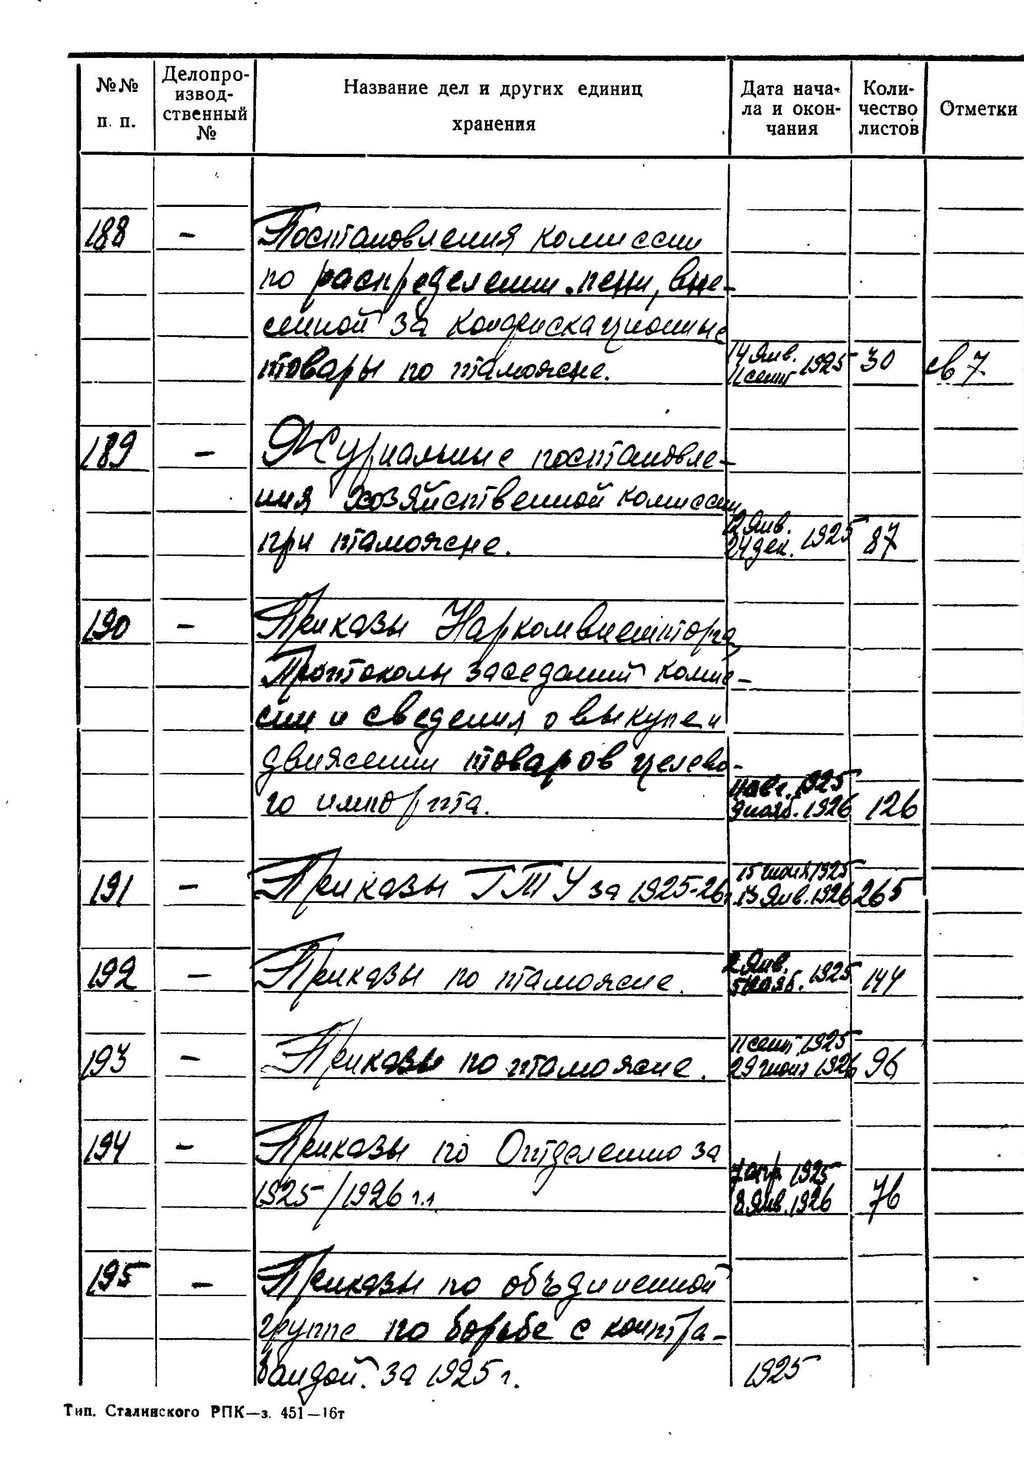 №№ п. п. Делопроизводственный № Название дел и других единиц хранения Дата начала и окончания Количество листов Отметки
188 – Постановления комиссии
по распределении пени, вне-
сенной за конфискационные
товары по таможне. 14 янв. 11 сент 1925 30 св 7
189 – Журнальные постановле-
ния хозяйственной комиссии
при таможне. 12 янв. 24 дек. 1925 87
190 – Приказы Наркомвнешторга,
Протоколы заседаний комис-
сии и сведения о выкупе и
движении товаров целево-
го импорта. 11 авг. 1925 9 нояб. 1926 126
191 – Приказы ГТУ за 1925-26г. 15 июля 1925 13 янв. 1926 265
192 – Приказы по таможне. 2 янв. 5 нояб. 1925 144
193 – Приказы по таможне. 11 сент. 1925 29 июня 1926 96
194 – Приказы по Отделению за
1925/1926 г.г. 7 апр. 1925 8 янв. 1926 76
195 – Приказы по объединенной
группе по борьбе с контра-
бандой. за 1925 г. 1925
Тип. Сталинского РПК—з. 451—16т